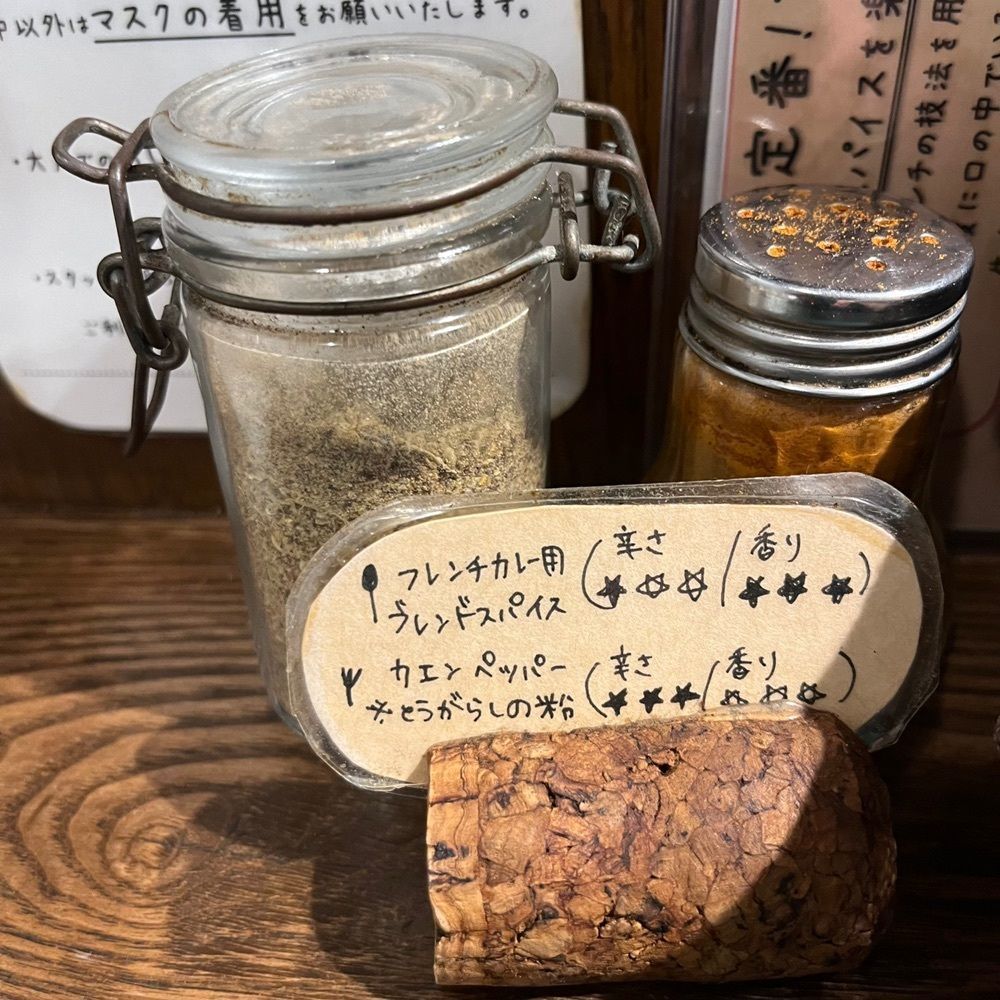 以外はマスクの着用をお願いいたします。
定番！
パイスを楽
ンチの技法を用
に口の中でい
・スタッ
ご利
フレンチカレー用
ブレンドスパイス
(辛さ ★☆☆ / 香り ★★★)
カエンペッパー
※とうがらしの粉
(辛さ ★★★ / 香り ☆☆☆)